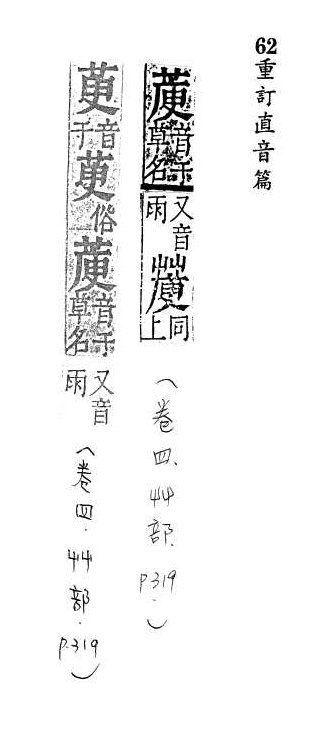 62重訂直音篇
音于草名又音雨 同上（卷四．艸部．P.319．）
萸音于 俗 音于草名又音雨（卷四．艸部．P.319）